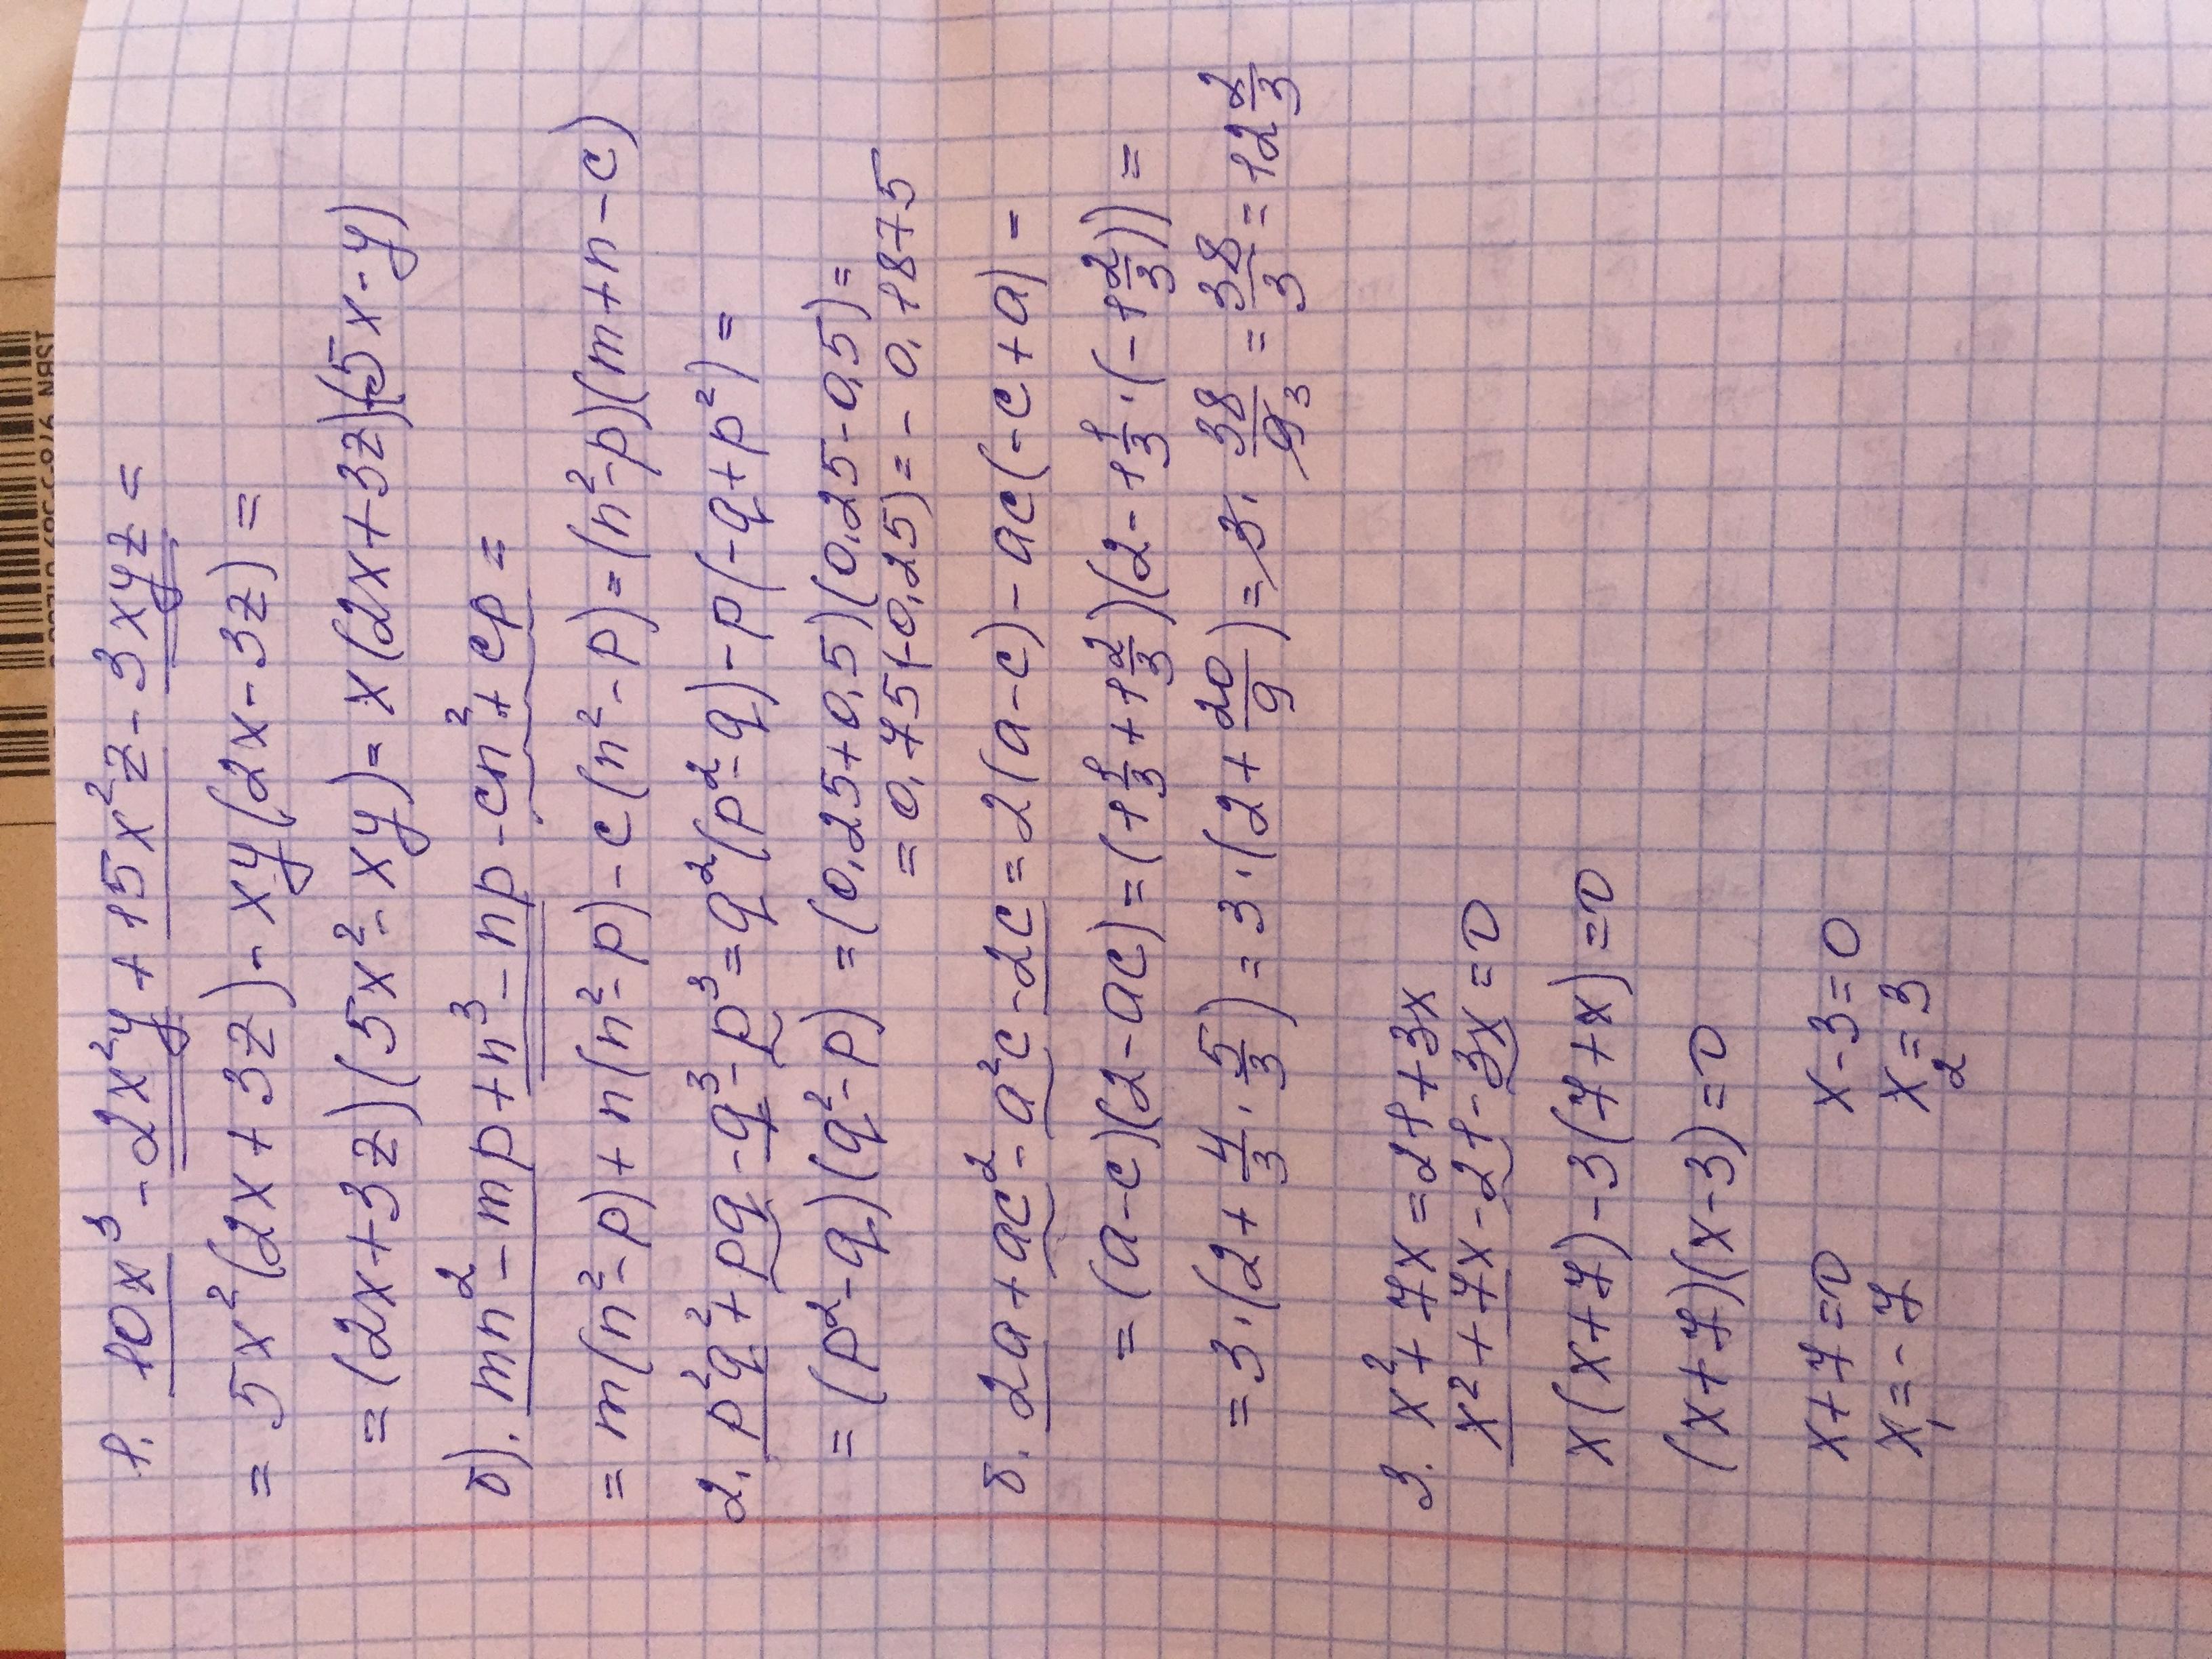 1. 10x³ - 2x²y + 15x²z - 3xyz =
= 5x²(2x + 3z) - xy(2x - 3z) =
= (2x + 3z)(5x² - xy) = x(2x + 3z)(5x - y)
б). mn² - mp + n³ - np - cn² + cp =
= m(n² - p) + n(n² - p) - c(n² - p) = (n² - p)(m + n - c)
2. p²q² + pq - q³ - p³ = q²(p² - q) - p(-q + p²) =
= (p² - q)(q² - p) = (0,25 + 0,5)(0,25 - 0,5) =
= 0,75(-0,25) = - 0,1875
б. 2a + ac² - a²c - 2c = 2(a - c) - ac(-c + a) -
= (a - c)(2 - ac) = (1 1/3 + 1 2/3)(2 - 1 1/3 · (- 1 2/3)) =
= 3 · (2 + 4/3 · 5/3) = 3 · (2 + 20/9) = 3 · 38/9 3 = 38/3 = 12 2/3
3. x² + 7x = 21 + 3x
x² + 7x - 21 - 3x = 0
x(x + 7) - 3(7 + x) = 0
(x + 7)(x - 3) = 0
x + 7 = 0 x - 3 = 0
x₁ = - 7 x₂ = 3
ISBN 978-5-9